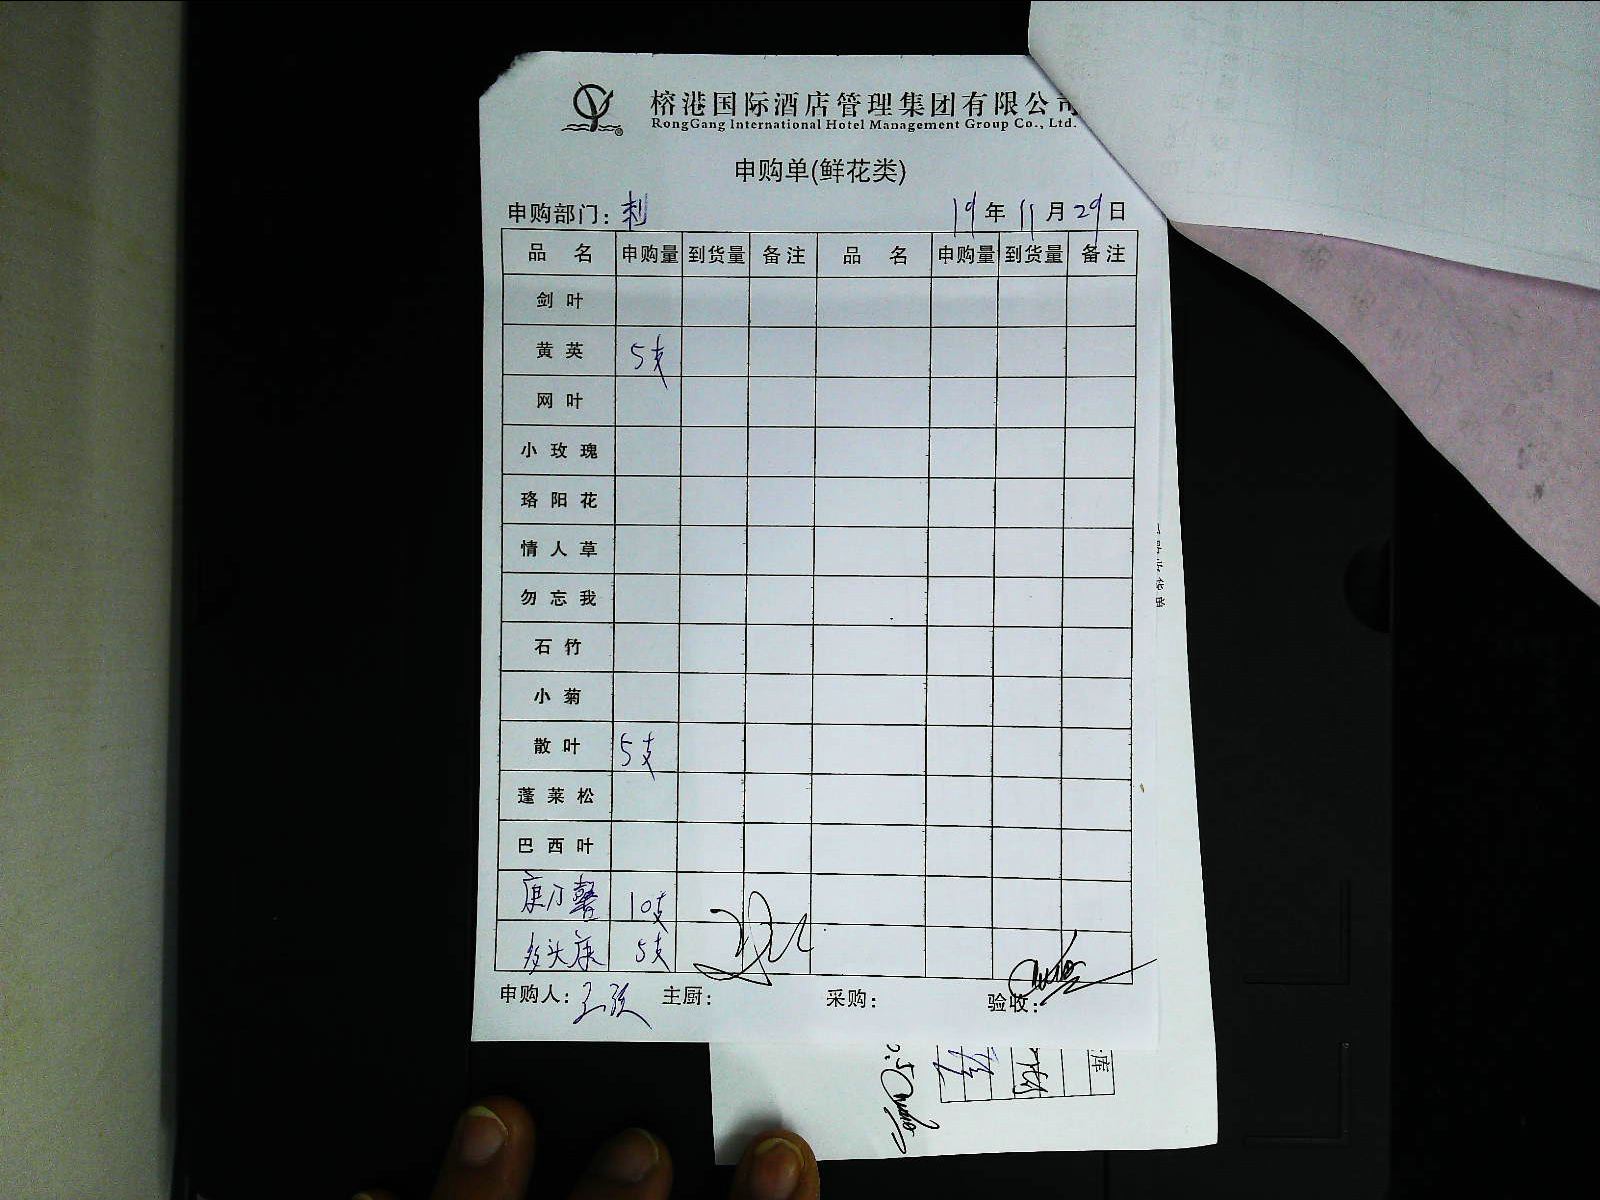 榕港国际酒店管理集团有限公司
RongGang International Hotel Management Group Co., Ltd.
申购单(鲜花类)
申购部门: 刺 19年 11月 29日
品名 申购量 到货量 备注 品名 申购量 到货量 备注
剑叶
黄英 5支
网叶
小玫瑰
珞阳花
情人草
勿忘我
石竹
小菊
散叶 5支
蓬莱松
巴西叶
康乃馨 10支
多头康 5支
申购人: 主厨: 采购: 验收:
库